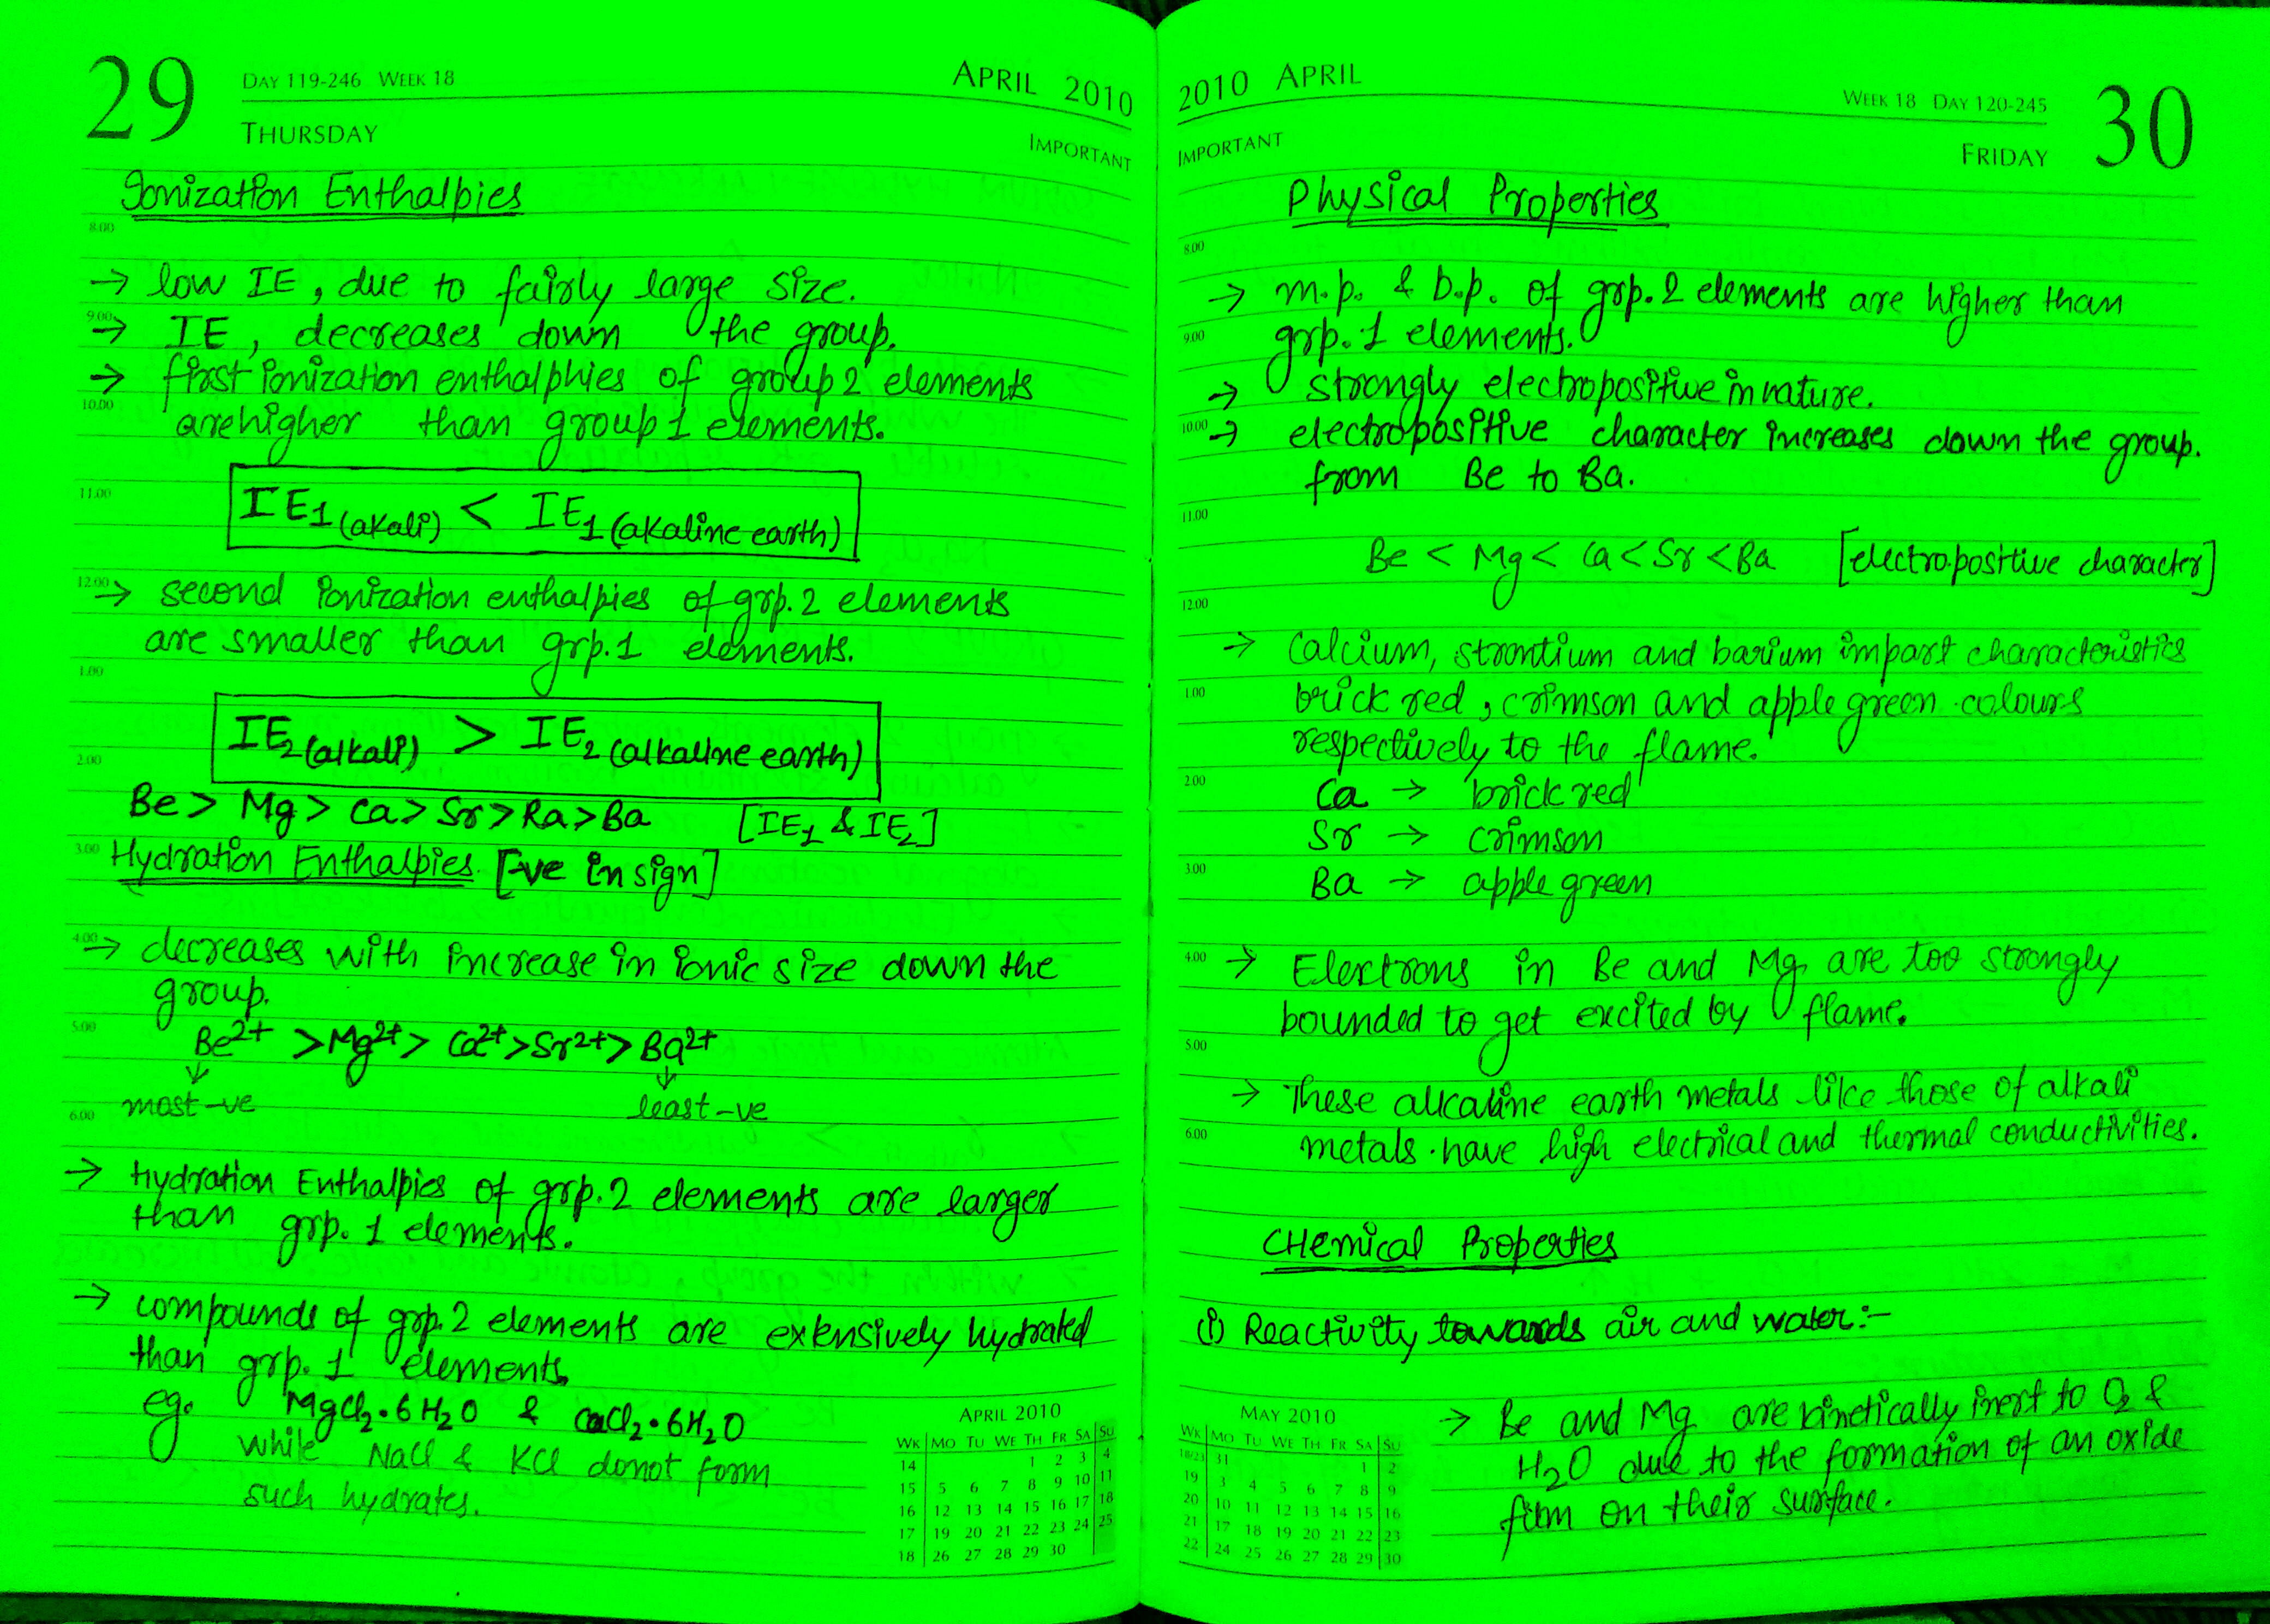 29
DAY 119-246 WEEK 18
APRIL 2010
THURSDAY
IMPORTANT
Ionization Enthalpies
8.00
→ low IE, due to fairly large size.
9.00
→ IE, decreases down the group.
→ first ionization enthalphies of group 2 elements
10.00
are higher than group 1 elements.
11.00
IE1 (akali) < IE1 (akaline earth)
12.00
→ second ionization enthalpies of grp. 2 elements
are smaller than grp. 1 elements.
1.00
IE2 (alkali) > IE2 (alkaline earth)
2.00
Be > Mg > Ca > Sr > Ra > Ba [IE1 & IE2]
3.00
Hydration Enthalpies. [-ve in sign]
4.00
→ decreases with increase in ionic size down the
group.
5.00
Be2+ > Mg2+ > Ca2+ > Sr2+ > Ba2+
↓ ↓
6.00
most -ve least -ve
→ Hydration Enthalpies of grp. 2 elements are larger
than grp. 1 elements.
→ compounds of grp. 2 elements are extensively hydrated
than grp. 1 elements.
eg. MgCl2·6H2O & CaCl2·6H2O
while NaCl & KCl donot form
such hydrates.
APRIL 2010
WK MO TU WE TH FR SA SU
14 1 2 3 4
15 5 6 7 8 9 10 11
16 12 13 14 15 16 17 18
17 19 20 21 22 23 24 25
18 26 27 28 29 30
2010 APRIL
WEEK 18 DAY 120-245
30
IMPORTANT
FRIDAY
Physical Properties
8.00
→ m.p. & b.p. of grp. 2 elements are higher than
9.00
grp. 1 elements.
→ strongly electropositive in nature.
10.00
→ electropositive character increases down the group.
from Be to Ba.
11.00
Be < Mg < Ca < Sr < Ba [electropositive character]
12.00
→ Calcium, strontium and barium impart characteristics
1.00
brick red, crimson and apple green colours
respectively to the flame.
2.00
Ca → brick red
Sr → crimson
3.00
Ba → apple green
4.00
→ Electrons in Be and Mg are too strongly
bounded to get excited by flame.
5.00
→ These alkaline earth metals like those of alkali
6.00
metals have high electrical and thermal conductivities.
CHemical Properties
(i) Reactivity towards air and water:-
→ Be and Mg are kinetically inert to O2 &
H2O due to the formation of an oxide
film on their surface.
MAY 2010
WK MO TU WE TH FR SA SU
31 1 2
19 3 4 5 6 7 8 9
20 10 11 12 13 14 15 16
21 17 18 19 20 21 22 23
22 24 25 26 27 28 29 30